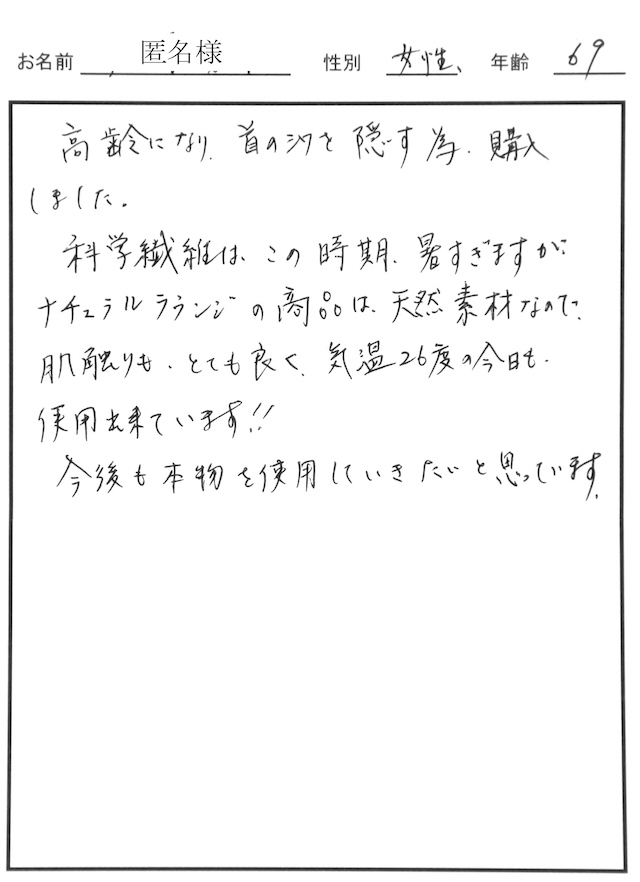 お名前 匿名様 性別 女性、 年齢 69
高齢になり、首のシワを隠す為、購入
しました。
科学繊維は、この時期、暑すぎますが、
ナチュラルラウンジの商品は、天然素材なので、
肌触りも、とても良く、気温26度の今日も、
使用出来ています!!
今後も本物を使用していきたいと思っています。